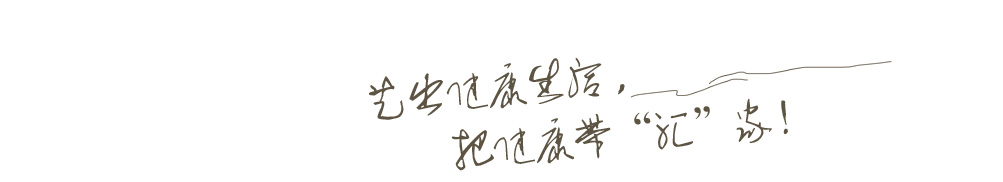 先出健康生活，
把健康带“汇”家！